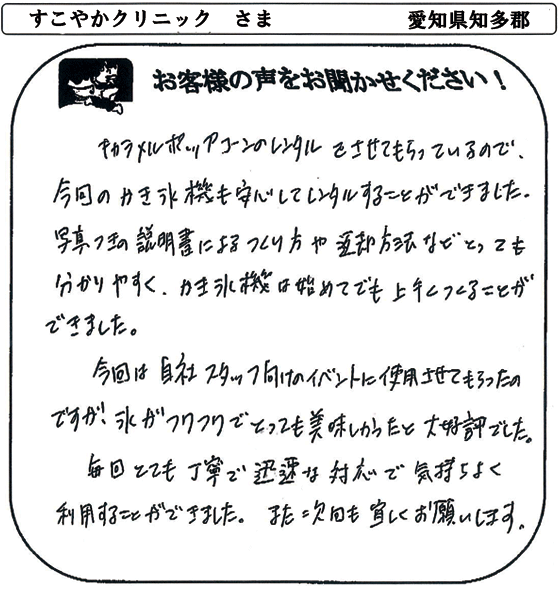 すこやかクリニック さま 愛知県知多郡
お客様の声をお聞かせください!
キャラメルポップコーンのレンタルをさせてもらっているので、
今回のかき氷機も安心してレンタルすることができました。
写真つきの説明書によるつくり方や返却方法などとっても
分かりやすく、かき氷機は始めてでも上手くつくることが
できました。
今回は自社スタッフ向けのイベントに使用させてもらったの
ですが、氷がフワフワでとっても美味しかったと大好評でした。
毎回とても丁寧で迅速な対応で気持ちよく
利用することができました。また次回も宜しくお願いします。